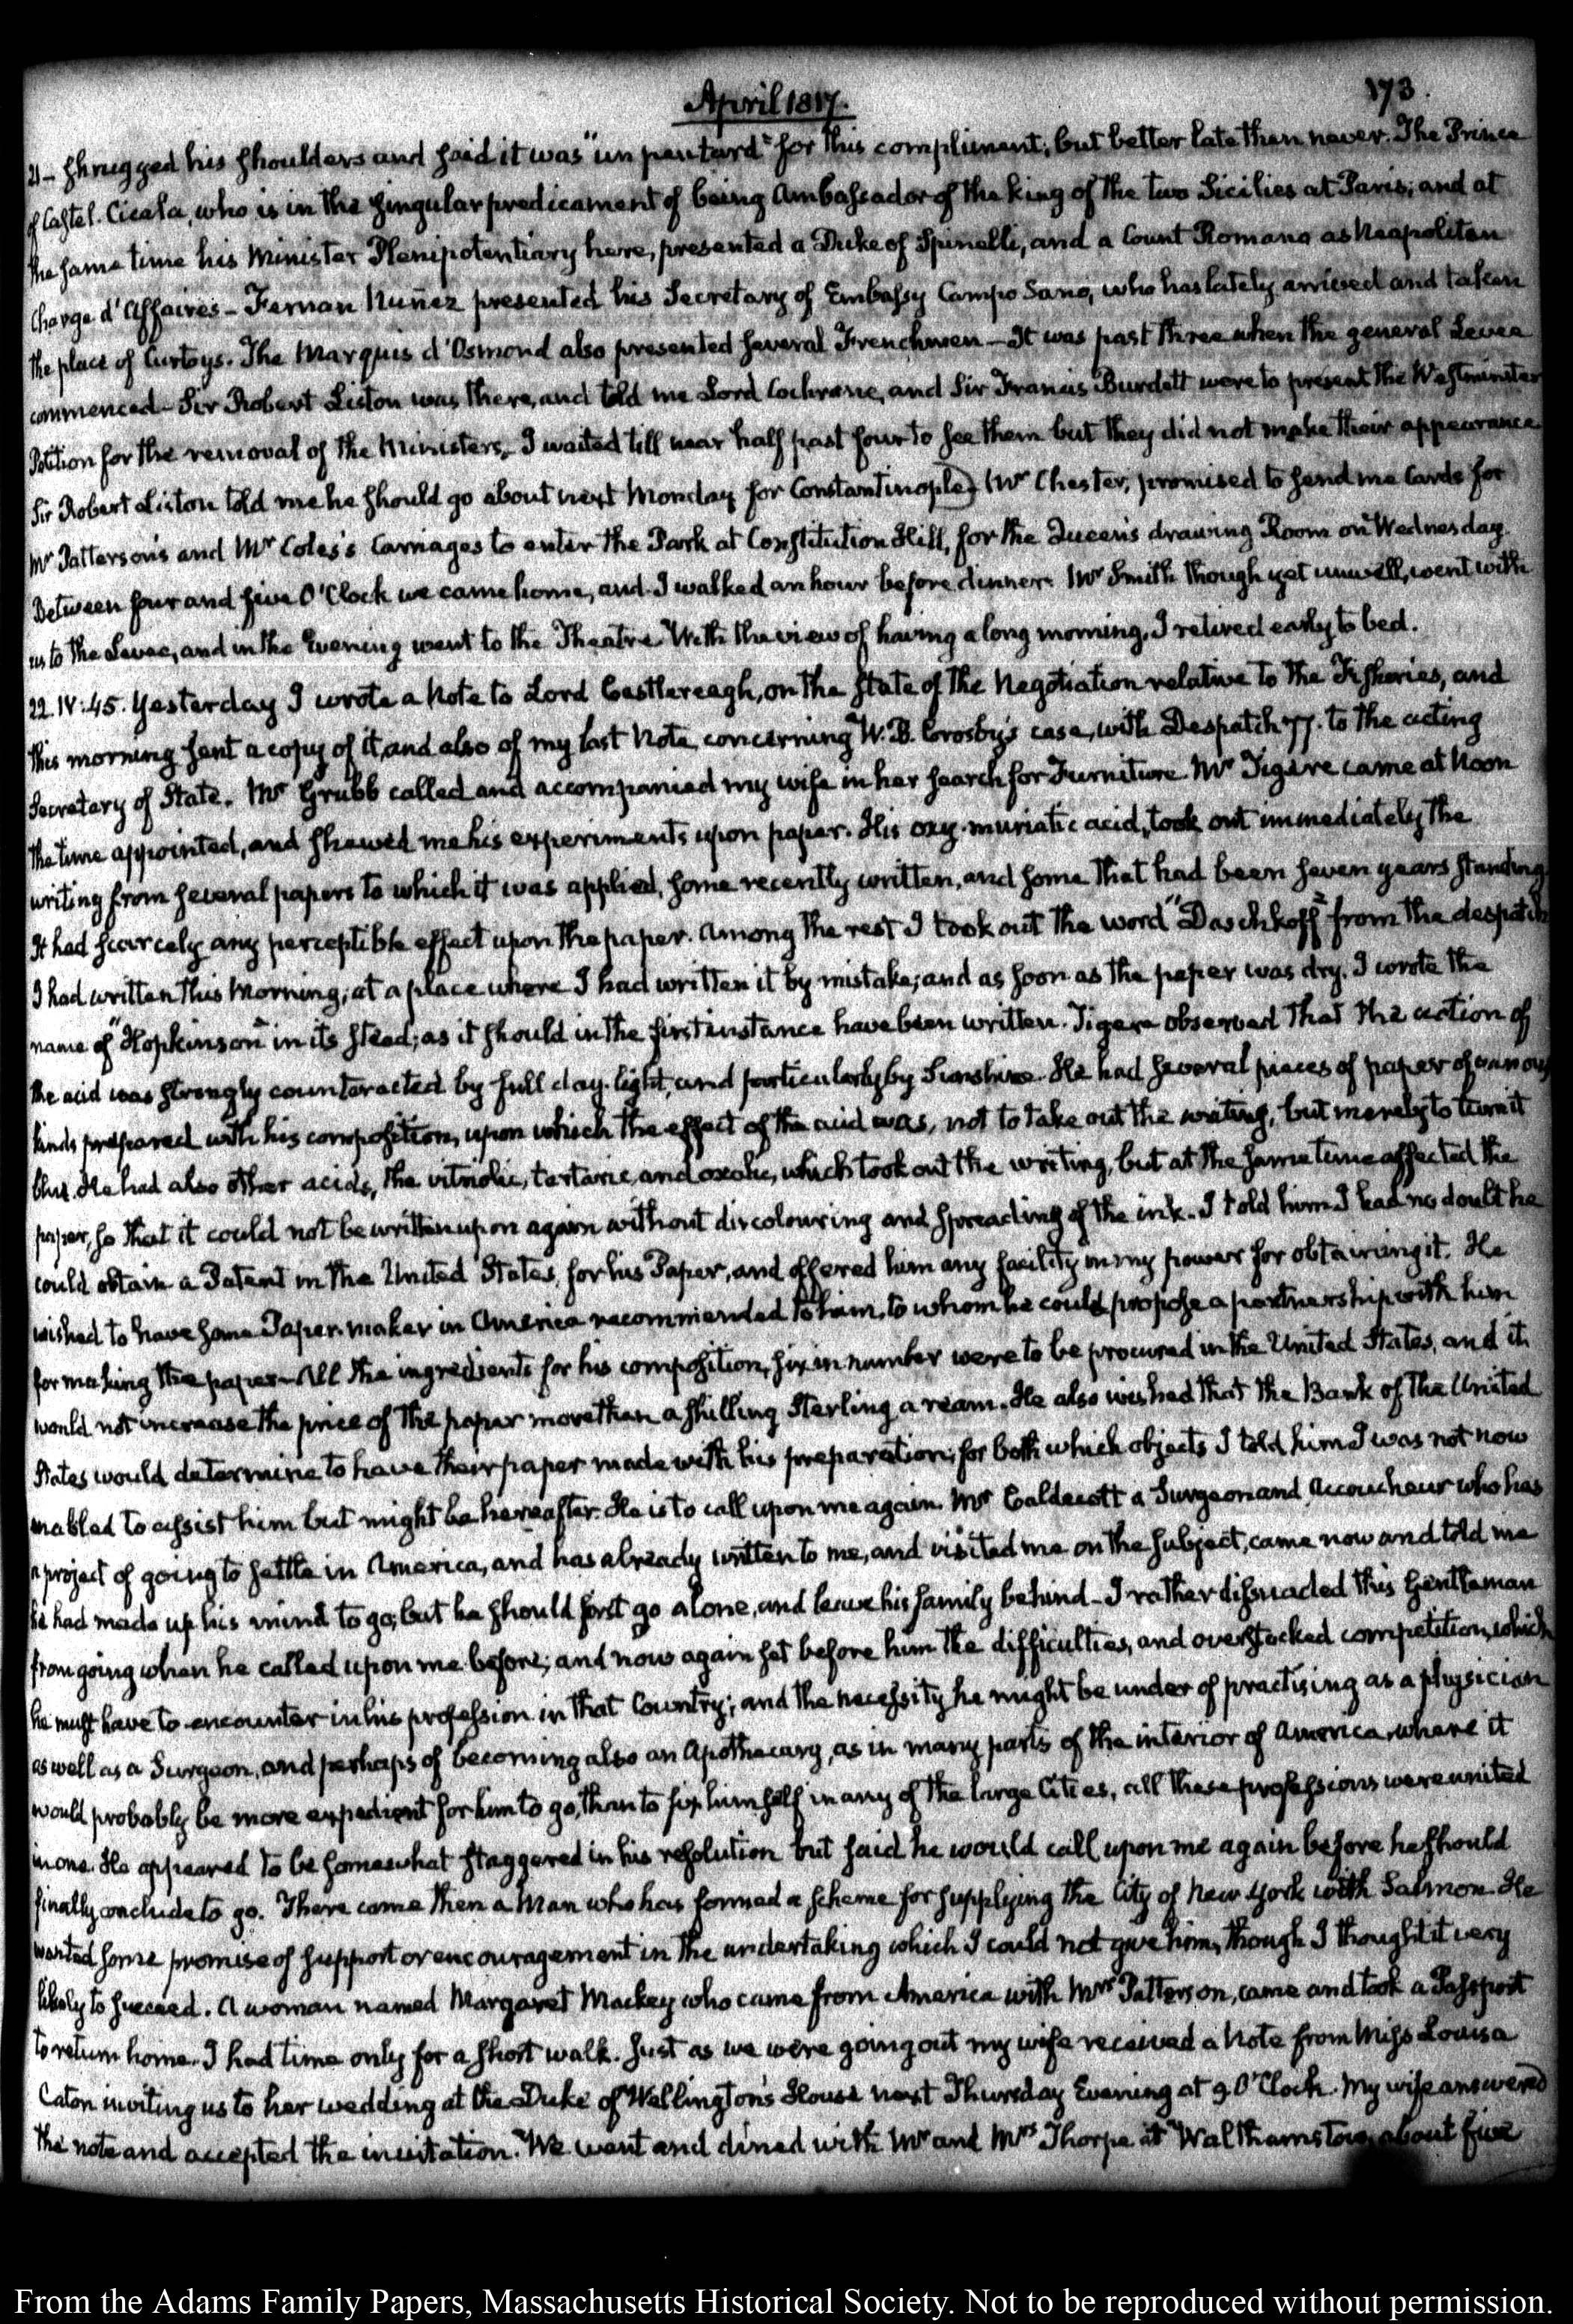 April 1817.
173.
21- shrugged his shoulders and said it was "un peu tard" for this compliment; but better late than never. The Prince
of Castel-Cicala, who is in the singular predicament of being Ambassador of the king of the two Sicilies at Paris, and at
the same time his Minister Plenipotentiary here, presented a Duke of Spinelli, and a Count Romano as Neapolitan
Chargé d'Affaires - Fernan Nuñez presented his Secretary of Embassy Campo Sano, who has lately arrived and taken
the place of Curtoys. The Marquis d'Osmond also presented several Frenchmen - It was past three when the general Levee
commenced - Sir Robert Liston was there, and told me Lord Cochrane, and Sir Francis Burdett were to present the Westminster
Petition for the removal of the Ministers. I waited till near half past four to see them but they did not make their appearance
Sir Robert Liston told me he should go about next Monday for Constantinople) Mr Chester, promised to send me Cards for
Mr Patterson's and Mr Coles's Carriages to enter the Park at Constitution Hill, for the Queen's drawing Room on Wednesday.
Between four and five O'Clock we came home, and I walked an hour before dinner. Mr Smith though yet unwell, went with
us to the Levee, and in the Evening went to the Theatre. With the view of having a long morning, I retired early to bed.
22. IV:45. Yesterday I wrote a Note to Lord Castlereagh, on the state of the Negotiation relative to the Fisheries, and
this morning sent a copy of it, and also of my last Note concerning W. B. Crosby's case, with Despatch 77. to the acting
Secretary of State. Mr Grubb called and accompanied my wife in her search for Furniture. Mr Tigere came at Noon
the time appointed, and shewed me his experiments upon paper. His oxy-muriatic acid, took out immediately the
writing from several papers to which it was applied, some recently written, and some that had been seven years standing.
It had scarcely any perceptible effect upon the paper. Among the rest I took out the word "Daschkoff" from the despatch
I had written this Morning; at a place where I had written it by mistake; and as soon as the paper was dry. I wrote the
name of "Hopkinson" in its stead; as it should in the first instance have been written. Tigere observed that the action of
the acid was strongly counteracted by full day-light, and particularly by Sunshine. He had several pieces of paper of various
kinds prepared with his composition, upon which the effect of the acid was, not to take out the writing, but merely to turn it
blue. He had also other acids, the vitriolic, tartaric, and oxalic, which took out the writing, but at the same time affected the
paper, so that it could not be written upon again without discolouring and spreading of the ink. I told him I had no doubt he
could obtain a Patent in the United States, for his Paper, and offered him any facility in my power for obtaining it. He
wished to have some Paper-maker in America recommended to him, to whom he could propose a partnership with him
for making the paper - All the ingredients for his composition, six in number were to be procured in the United States, and it
would not increase the price of the paper more than a shilling Sterling a ream. He also wished that the Bank of the United
States would determine to have their paper made with his preparation; for both which objects I told him I was not now
enabled to assist him but might be hereafter. He is to call upon me again. Mr Caldecott a Surgeon and Accoucheur who has
a project of going to settle in America, and has already written to me, and visited me on the subject, came now and told me
he had made up his mind to go, but he should first go alone, and leave his family behind - I rather dissuaded this Gentleman
from going when he called upon me before; and now again set before him the difficulties, and overstocked competition, which
he must have to encounter in his profession in that Country; and the necessity he might be under of practising as a physician
as well as a Surgeon, and perhaps of becoming also an Apothecary, as in many parts of the interior of America, where it
would probably be more expedient for him to go, than to fix himself in any of the large Cities, all these professions were united
in one. He appeared to be somewhat staggered in his resolution but said he would call upon me again before he should
finally conclude to go. There came then a Man who has formed a scheme for supplying the City of New York with Salmon. He
wanted some promise of support or encouragement in the undertaking which I could not give him, though I thought it very
likely to succeed. A woman named Margaret Mackey who came from America with Mrs Patterson, came and took a Passport
to return home. I had time only for a short walk. Just as we were going out my wife received a Note from Miss Louisa
Caton inviting us to her wedding at the Duke of Wellington's House next Thursday Evening at 9 O'Clock. My wife answered
the note and accepted the invitation. We went and dined with Mr and Mrs Thorpe at Walthamstow, about five
From the Adams Family Papers, Massachusetts Historical Society. Not to be reproduced without permission.